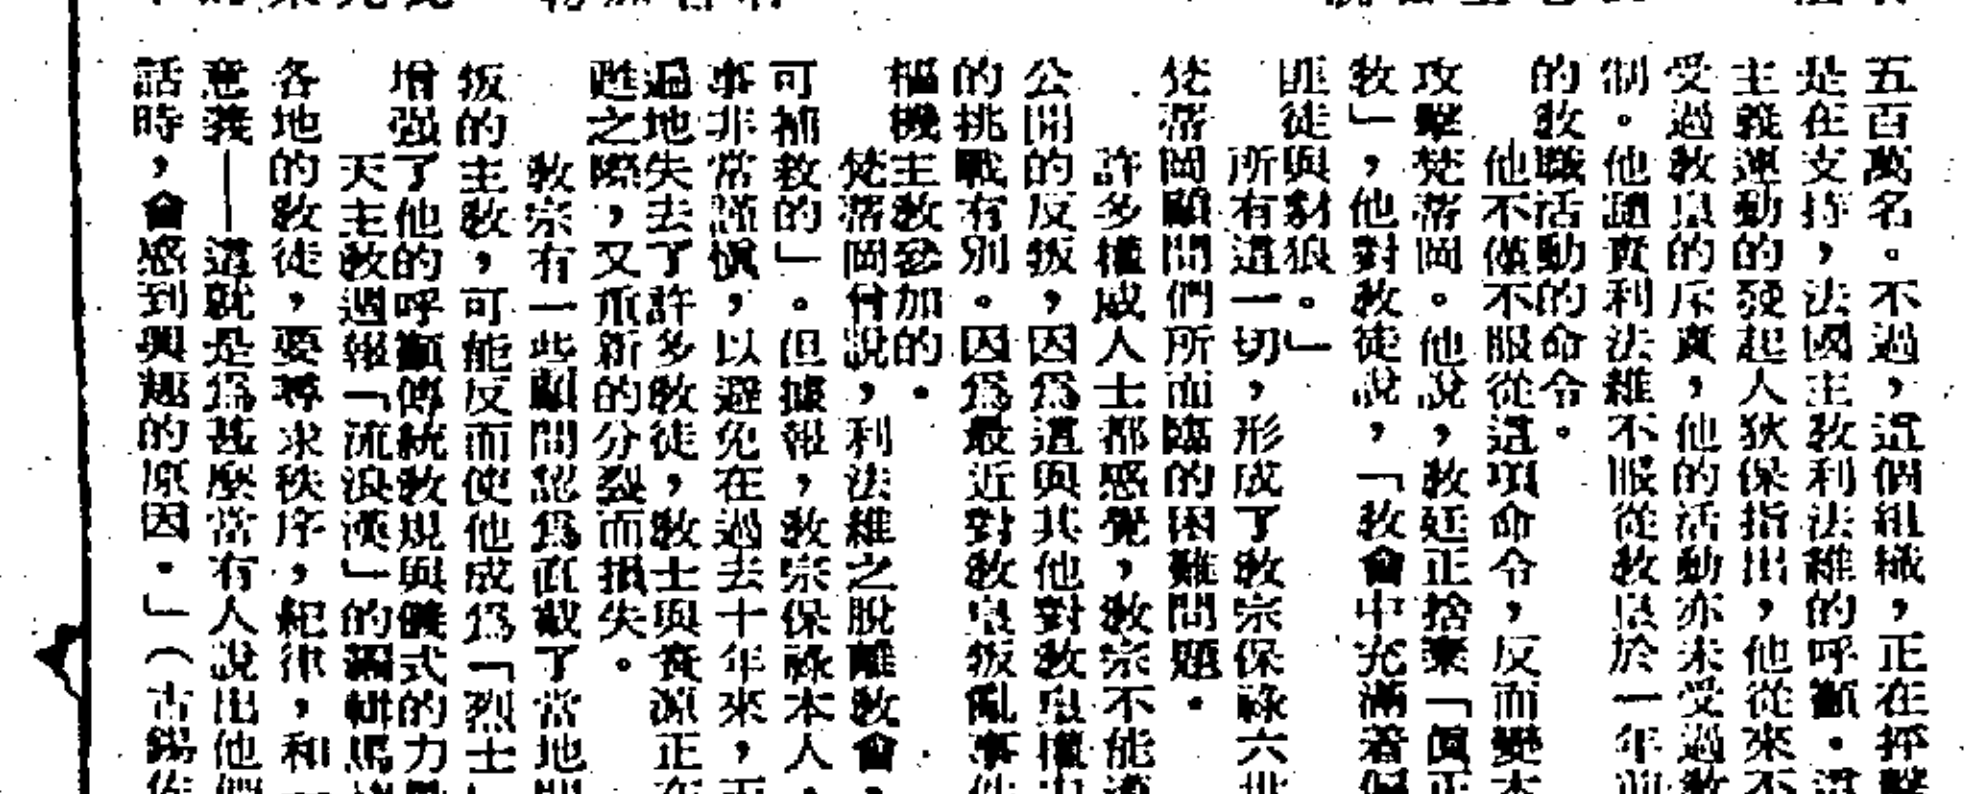 五百萬名。不過，這個組織，正在抨擊
是在支持，法國主教利法維的呼籲。這
主義運動的發起人狄保指出，他從來不
受過教皇的斥責，他的活動亦未受過教
制。他譴責利法維不服從教皇於一年前
的教職活動的命令。
他不僅不服從這項命令，反而變本
攻擊梵蒂岡。他說，教廷正捨棄「眞正
教」，他對教徒說，「教會中充滿着
匪徒與豺狼。」
所有這一切，形成了教宗保祿六世
梵蒂岡顧問們所面臨的困難問題。
許多權威人士都感覺，教宗不能
公開的反叛，因爲這與其他對教皇權力
的挑戰有別。因爲最近對教皇叛亂事件
樞機主教參加的。
梵蒂岡曾說，利法維之脫離教會，
可補救的」。但據報，教宗保祿本人，
事非常謹愼，以避免在過去十年來，
過地失去了許多教徒，教士與資源正在
甦之際，又重新的分裂而損失。
教宗有一些顧問認爲直截了當地
叛的主教，可能反而使他成爲「烈士」
增强了他的呼籲傳統教規與儀式的力量
天主教週報「流浪漢」的編輯馬
各地的教徒，要尋求秩序，紀律，和
意義——這就是爲甚麼當有人說出他們
話時，會感到興趣的原因。」（古錫佐